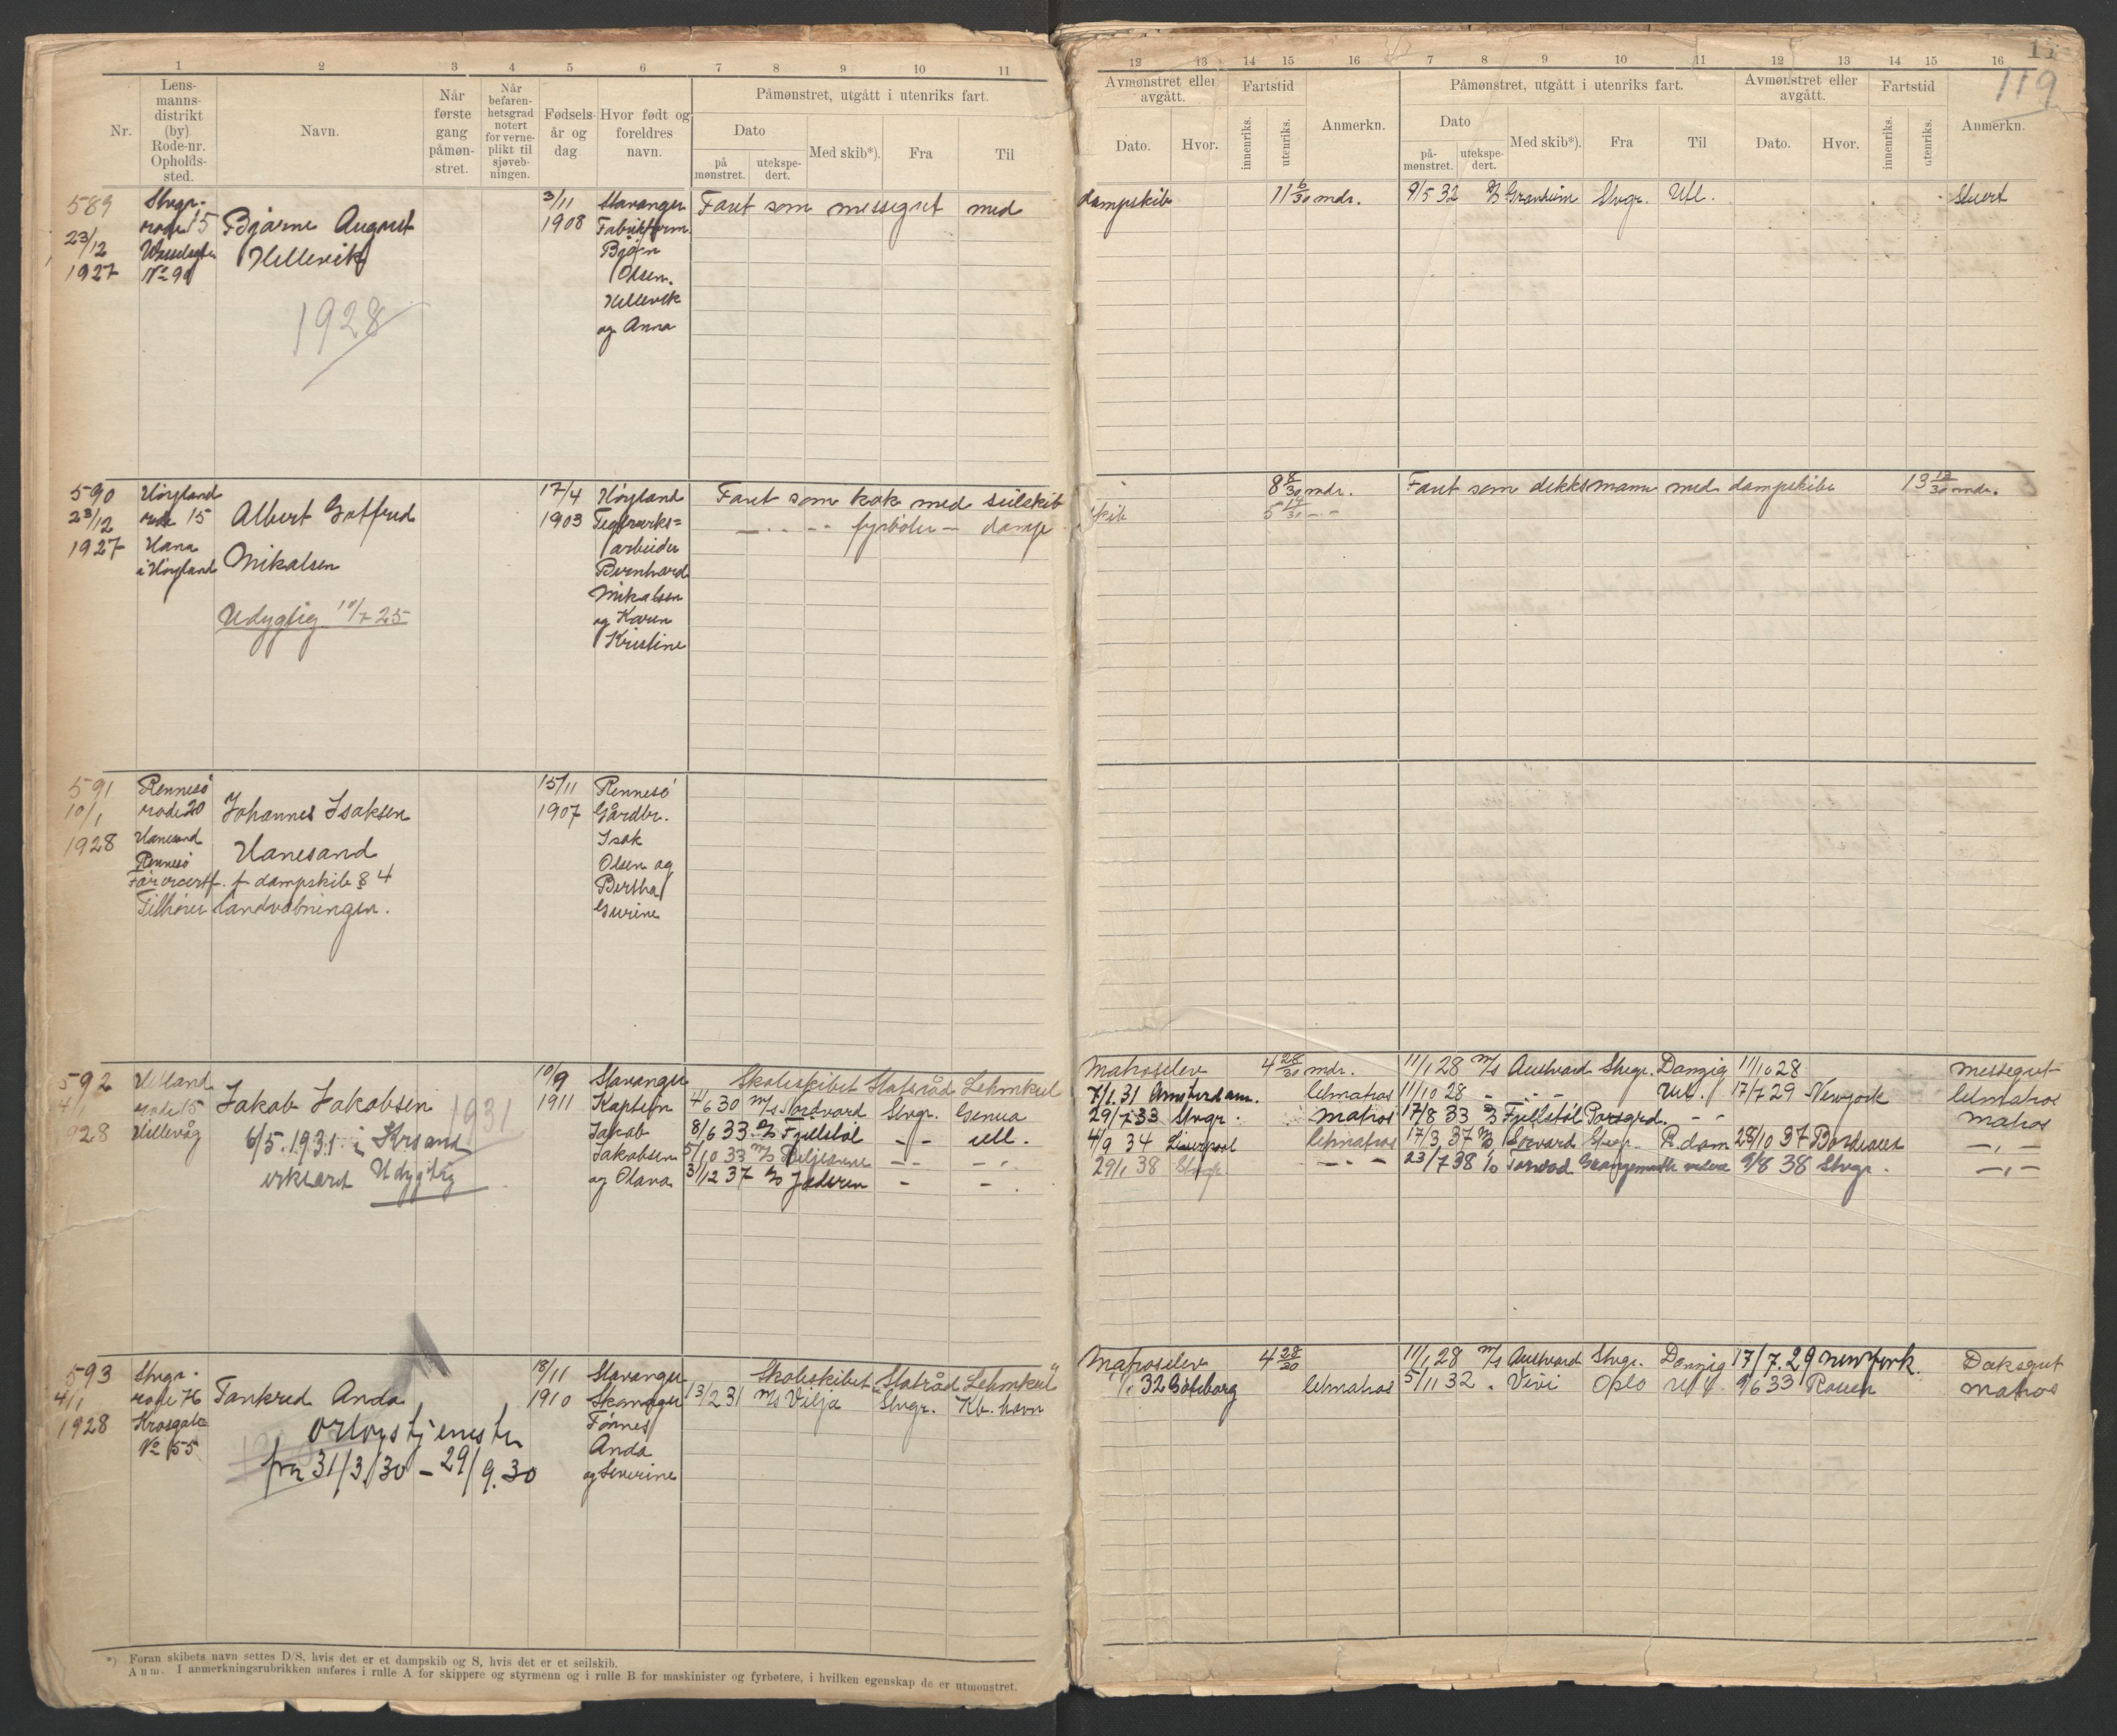 1 2 3 4 5 6 7 8 9 10 11
Nr.
Lens-
manns-
distrikt
(by)
Rode-nr.
Opholds-
sted.
Navn.
Når
første
gang
påmøn-
stret.
Når
befaren-
hetsgrad
notert
for verne-
plikt til
sjøveb-
ningen.
Fødsels-
år og
dag
Hvor født og
foreldres
navn.
Påmønstret, utgått i utenriks fart.
Dato
på
mønstret.
utekspe-
dert.
Med skib*).
Fra
Til
12 13 14 15 16 7 8 9 10 11 12 13 14 15 16
119
Avmønstret eller
avgått.
Dato.
Hvor.
Fartstid
innenriks.
utenriks.
Anmerkn.
Påmønstret, utgått i utenriks fart.
Dato
på-
mønstret.
utekspe-
dert.
Med skib*).
Fra
Til
Avmønstret eller
avgått.
Dato.
Hvor.
Fartstid
innenriks.
utenriks.
Anmerkn.
589
23/12
1927
Stvgr.
rode 15
No 99
Bjarne August
Hellevik
1928
3/11
1908
Stavanger
Fabrikform.
Bjørn
Olsen
Hellevik
og Anna
Faret som messegut med dampskib 11 6/30 mdr. 9/5 32 Stvgr. Utl. Stuert
590
23/12
1927
Høyland
rode 15
Hana
i Høyland
Albert Gotfred
Mikalsen
Udygtig 10/7 25
17/4
1903
Høyland
Teglverks=
arbeider
Bernhard
Mikalsen
og Karen
Kristine
Faret som kok med seilskib 8 8/30 mdr. Faret som dekksmann med dampskibe 13 13/30 mdr.
— fyrbøter — dampskib
591
10/1
1928
Rennesø
rode 20
Hanesand
Rennesø
Johannes Isaksen
Hanesand
f. dampskib § 4
Tilhører landvebningen.
15/11
1907
Rennesø
Gårdbr.
Isak
Olsen og
Bertha
Gurine
592
Hetland
rode 15
Hillevåg
Jakob Jakobsen
1931
6/5.1931 i Krsand
erklært Udygtig
10/9
1911
Stavanger
Kaptein
Jakob
Jakobsen
og Olava
Skoleskibet Statsråd Lehmkul Matroselev 4 28/30 mdr. 11/1 28 m/s Austvard Stvgr. Danzig 11/10 28 messegut
4/6 30 m/s Nordvard Stvgr. Genua 7/1.31 Amsterdam. letmatros 11/10 28 - - - Utl. 17/7 29 Newyork letmatros
8/6 33 Fjellstøl - - utl. 29/7 33 Stvgr. matros 17/8 33 Fjellstøl Porsgrd. - - matros
5/10 33 - - 4/9 34 Liverpool letmatros 17/3 37 Stvgr. R.dam 28/10 37 Bordeaux —,—
31/12 37 Jæderen - - 29/1 38 Stvgr - - - 23/7 38 9/8 38 Stvgr. —,—
593
4/1
1928
Stvgr.
rode 76
No 55
Tankred Anda
orlogstjeneste
fra 31/3/30 - 29/9.30
18/11
1910
Stavanger
Tønnes
Anda
og Severine
Skoleskibet "Statsråd Lehmkul" Matroselev 4 28/30 11/1 28 m/s Austvard Stvgr. Danzig 17/7.29 New York. Daksgut
13/2 31 m/s Vilja Stvgr. Kb.havn 32 Gøteborg letmatros 5/11 32 Vivi Oslo Utl. 9/6 33 Rouen matros
*) Foran skibets navn settes D/S, hvis det er et dampskib og S, hvis det er et seilskib.
Anm. I anmerkningsrubrikken anføres i rulle A for skippere og styrmenn og i rulle B for maskinister og fyrbøtere, i hvilken egenskap de er utmønstret.